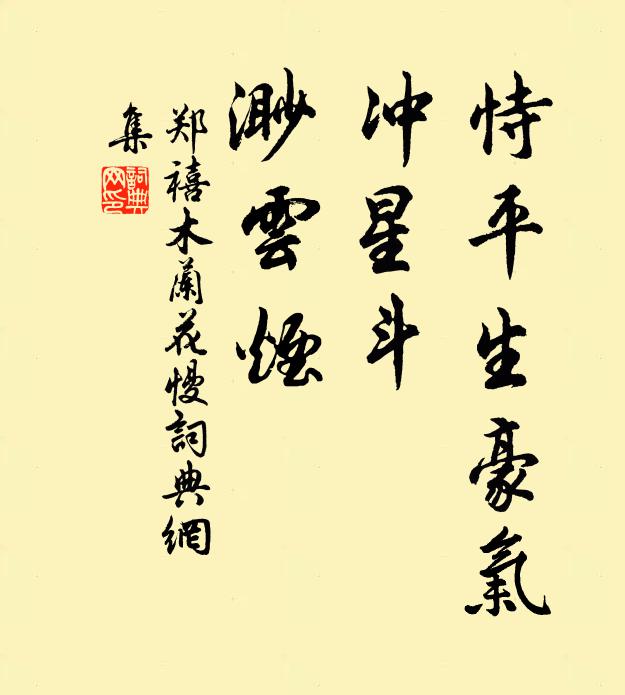 恃平生豪氣
冲星斗
渺雲煙
郑禧木蘭花慢詞典網
集
詞典
网印